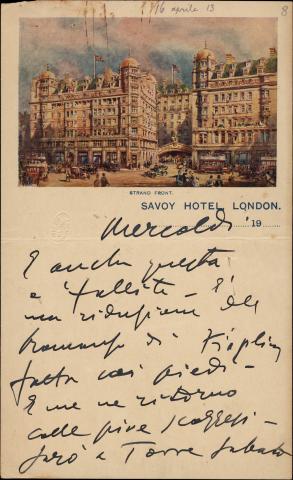 16 aprile 13
8
STRAND FRONT.
SAVOY HOTEL, LONDON.
Mercoldì 19
E anche questa
è fallita - È
una riduzione del
Romanzo di Kipling
fatta coi piedi -
E me ne ritorno
colle pive scozzesi -
Sarò a Torre Sabato